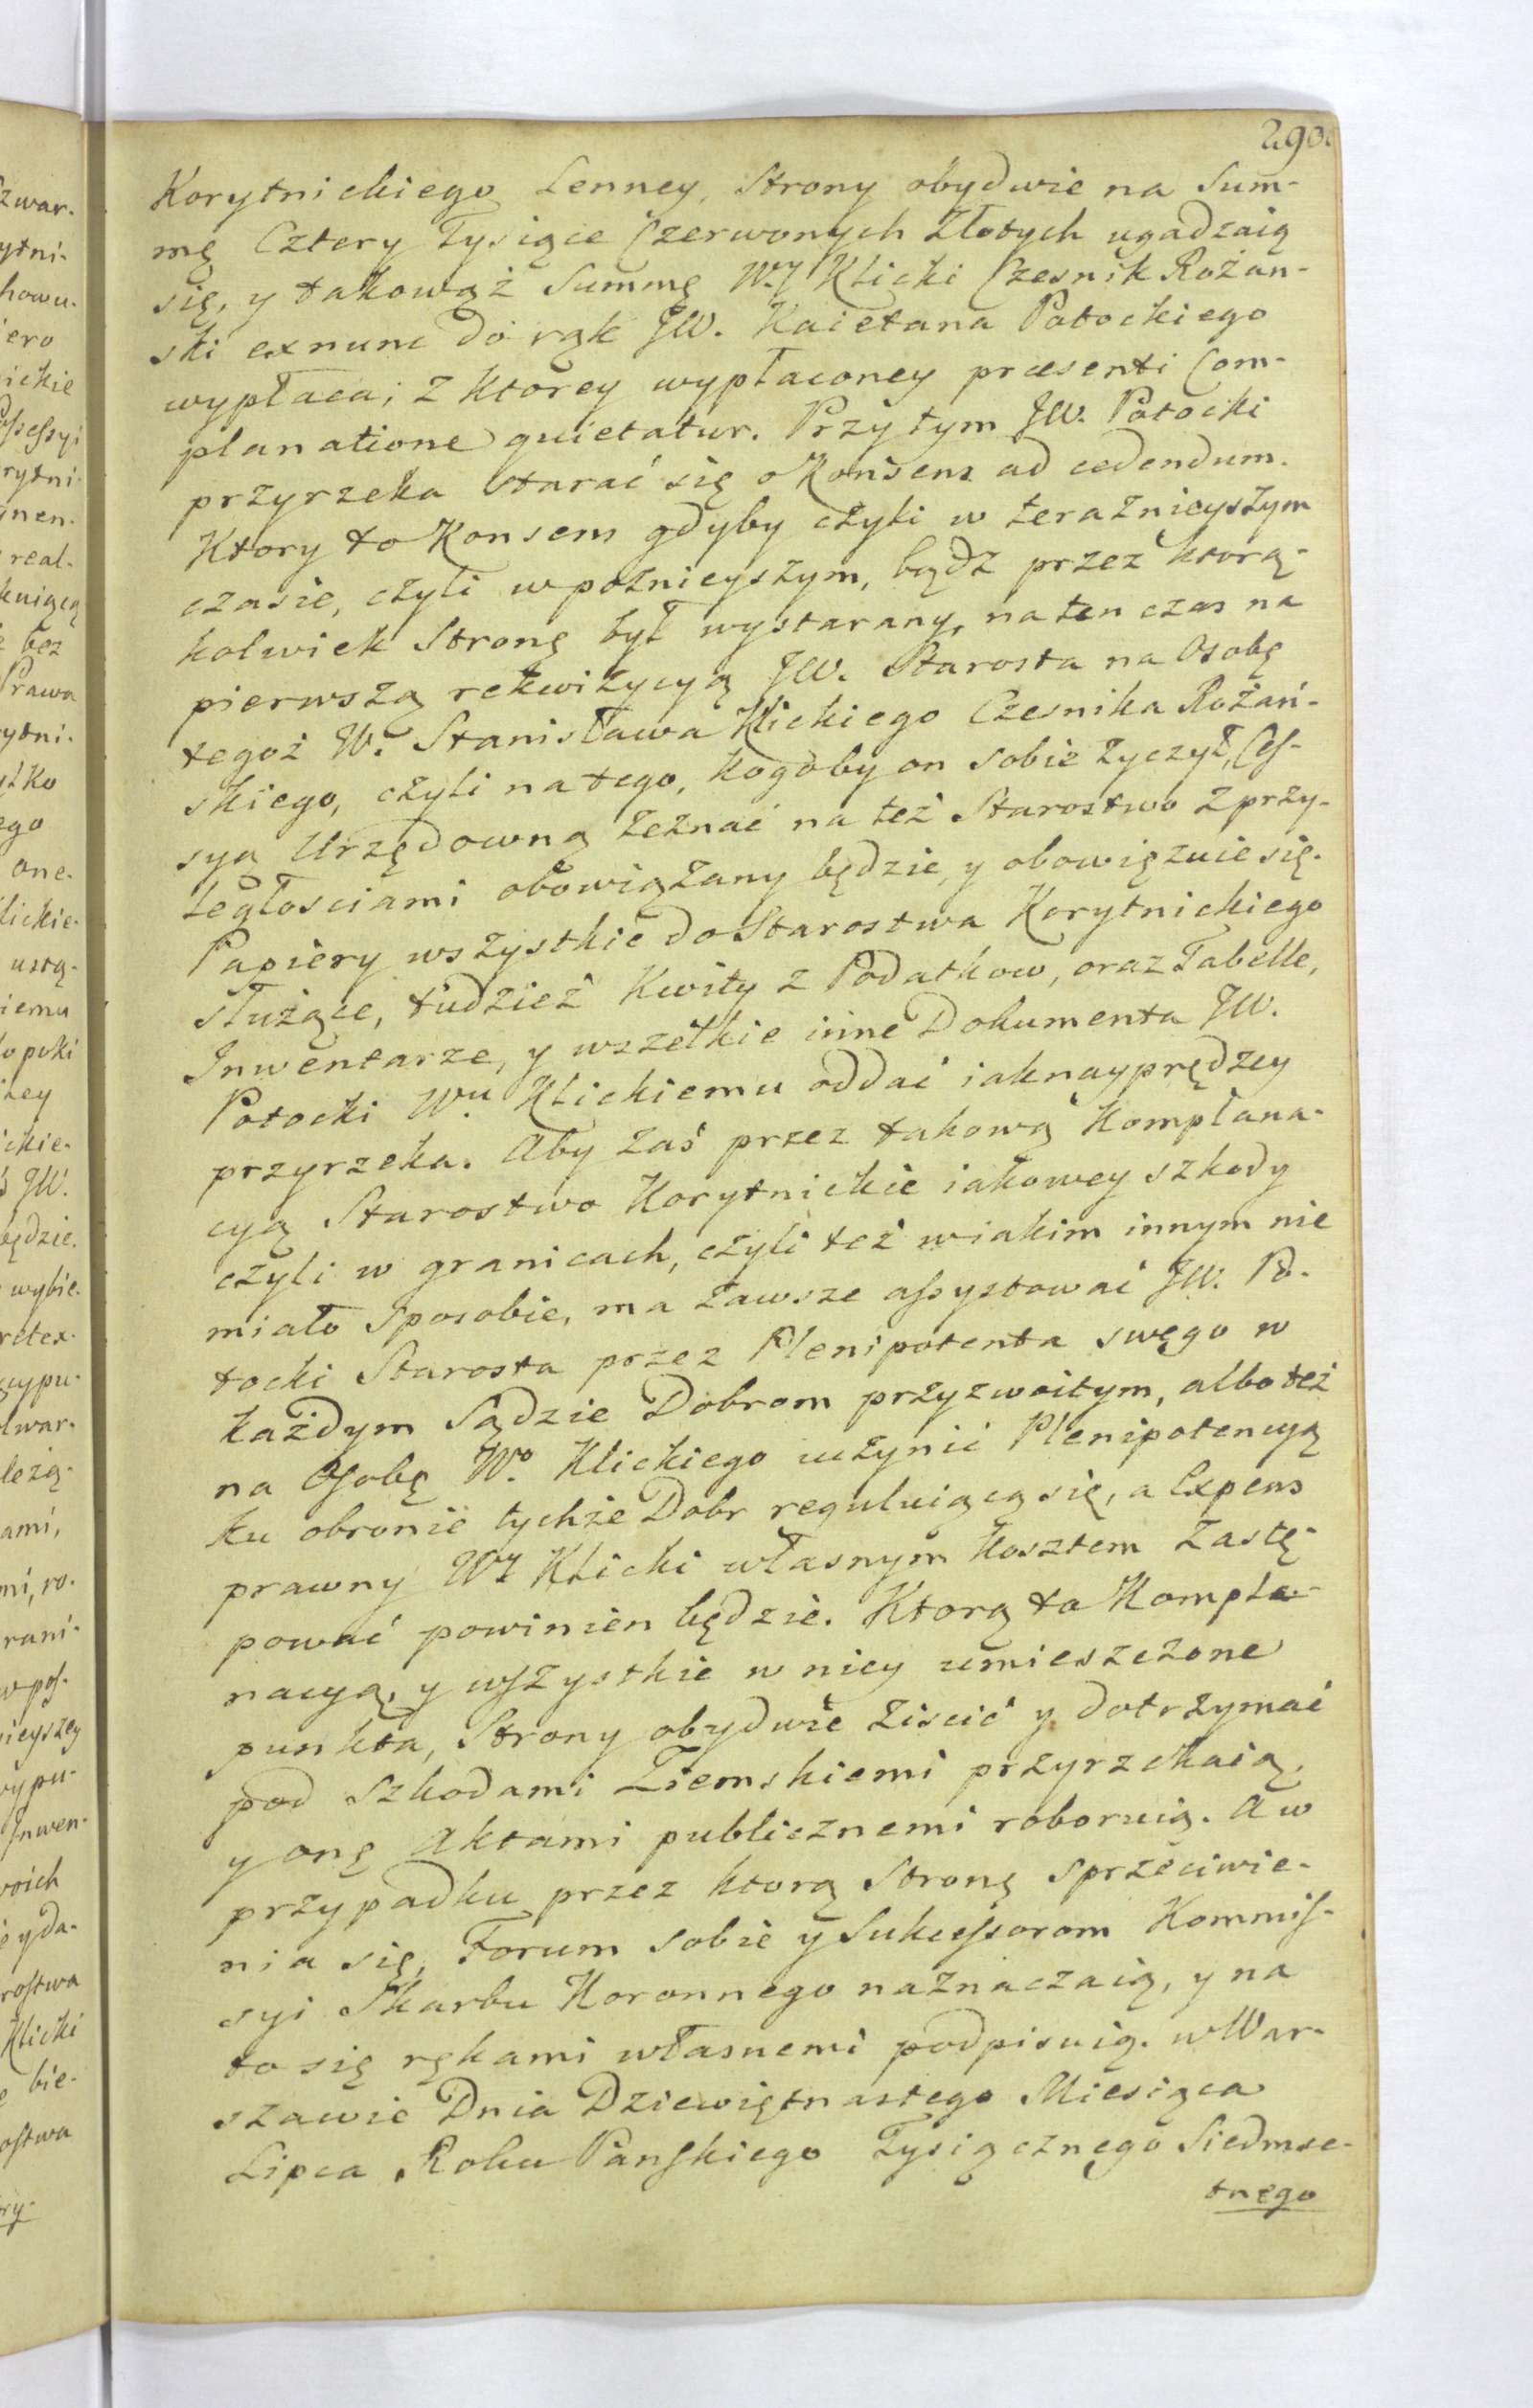 290.
Korytnickiego Lenney, Strony obydwie na Sum-
mę Cztery Tysiące Czerwonych Złotych ugadzaią
się, y takowąż Summę W.J Klicki Czesnik Rożan-
ski exnunc do rąk JW. Kaietana Potockiego
wypłaca; z ktorey wypłaconey præsenti Com-
planatione quietatur. Przytym JW. Potocki
przyrzeka starać się o Konsens ad cedendum.
Ktory to Konsens gdyby czyli w teraznieyszym
czasie, czyli w poznieyszym, bądz przez ktorą-
kolwiek Stronę był wystarany, na ten czas na
pierwszą rekwizycyą JW. Starosta na Osobę
tegoż W. Stanisława Klickiego Czesnika Rożań-
skiego, czyli na tego, kogoby on sobie życzył, Ces-
sya Urzędowną zeznać na też Starostwo z przy-
ległosciami obowiązany będzie, y obowięzuie się.
Papiery wszystkie do Starostwa Korytnickiego
służące, tudzież Kwity z Podatkow, oraz Tabelle,
Inwentarze, y wszelkie inne Dokumenta JW.
Potocki Wu. Klickiemu oddać iaknayprędzey
przyrzeka. Aby zaś przez takową Komplana-
cyą Starostwo Korytnickie iakowey szkody
czyli w granicach, czyli też w iakim innym nie
miało sposobie, ma zawsze assystować JW. Po-
tocki Starosta przez Plenipotenta swego w
każdym Sądzie Dobrom przyzwoitym, albo też
na Osobę Wo. Klickiego uczynić Plenipotencyą
ku obronie tychże Dobr reguluiącą się, a Expens
prawny WJ Klicki własnym kosztem zastę-
pować powinien będzie. Ktorą to Kompla-
nacyą, y wszystkie w niey umieszczone
punkta, Strony obydwie ziscić y dotrzymać
pod Szkodami Ziemskiemi przyrzekaią,
y onę Aktami publicznemi roboruią. A w
przypadku przez ktorą Stronę sprzeciwie-
nia się, Forum sobie y Sukcessorom Kommis-
syi Skarbu Koronnego naznaczaią, y na
to się rękami własnemi podpisuią. w War-
szawie Dnia Dziewiętnastego Miesiąca
Lipca Roku Panskiego Tysiącznego Siedmse-
tnego